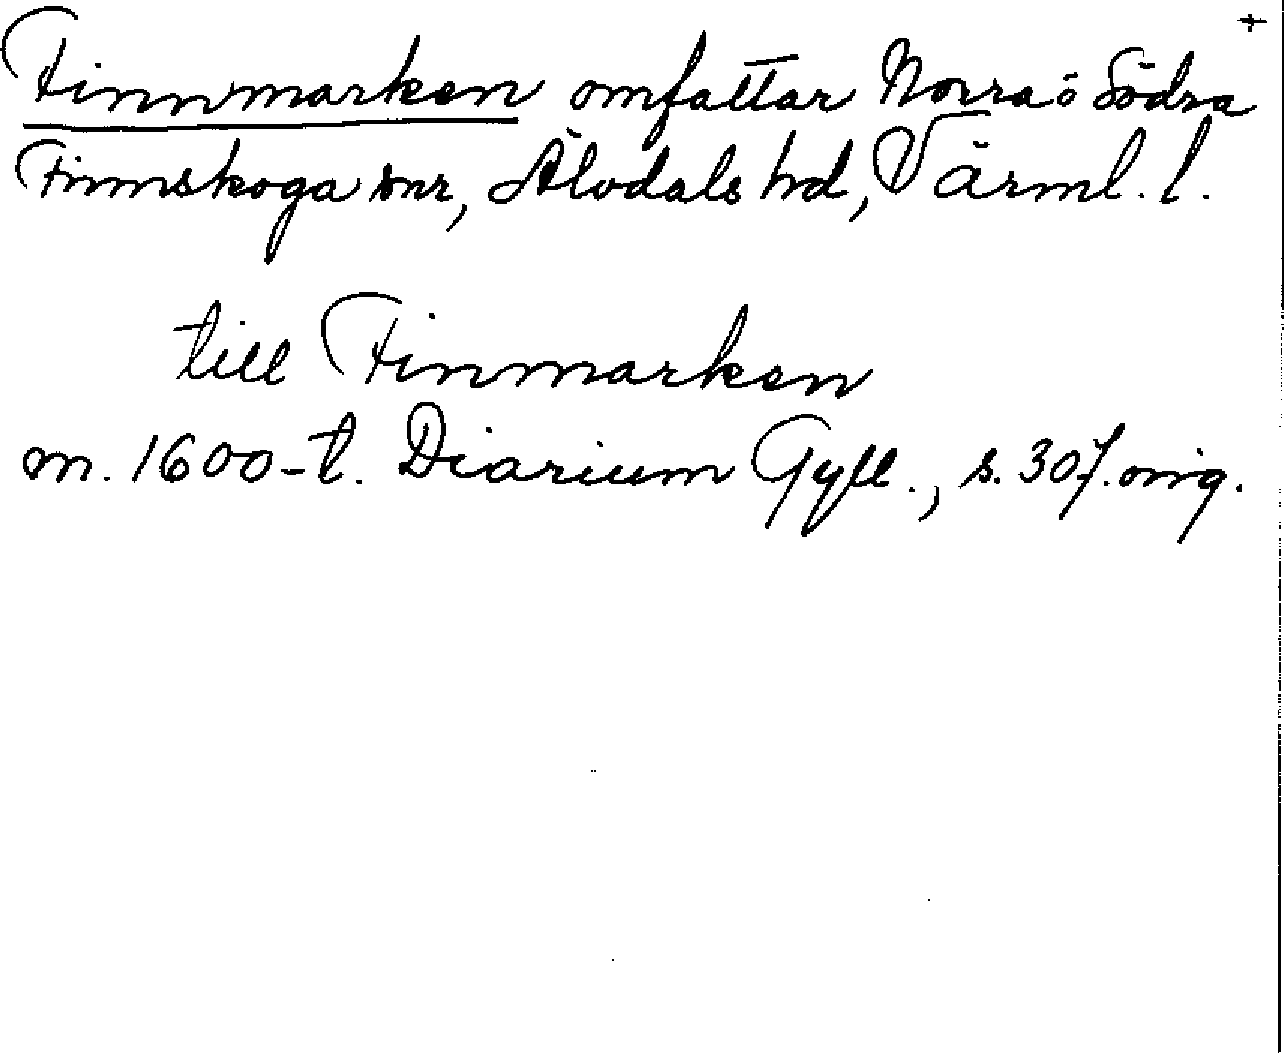 +
Finnmarken omfattar Norra o Södra
Finnskoga snr, Älvdals hd, Värml. l.
till Finmarken
m. 1600-t. Diarium Gyll., s. 307. orig.